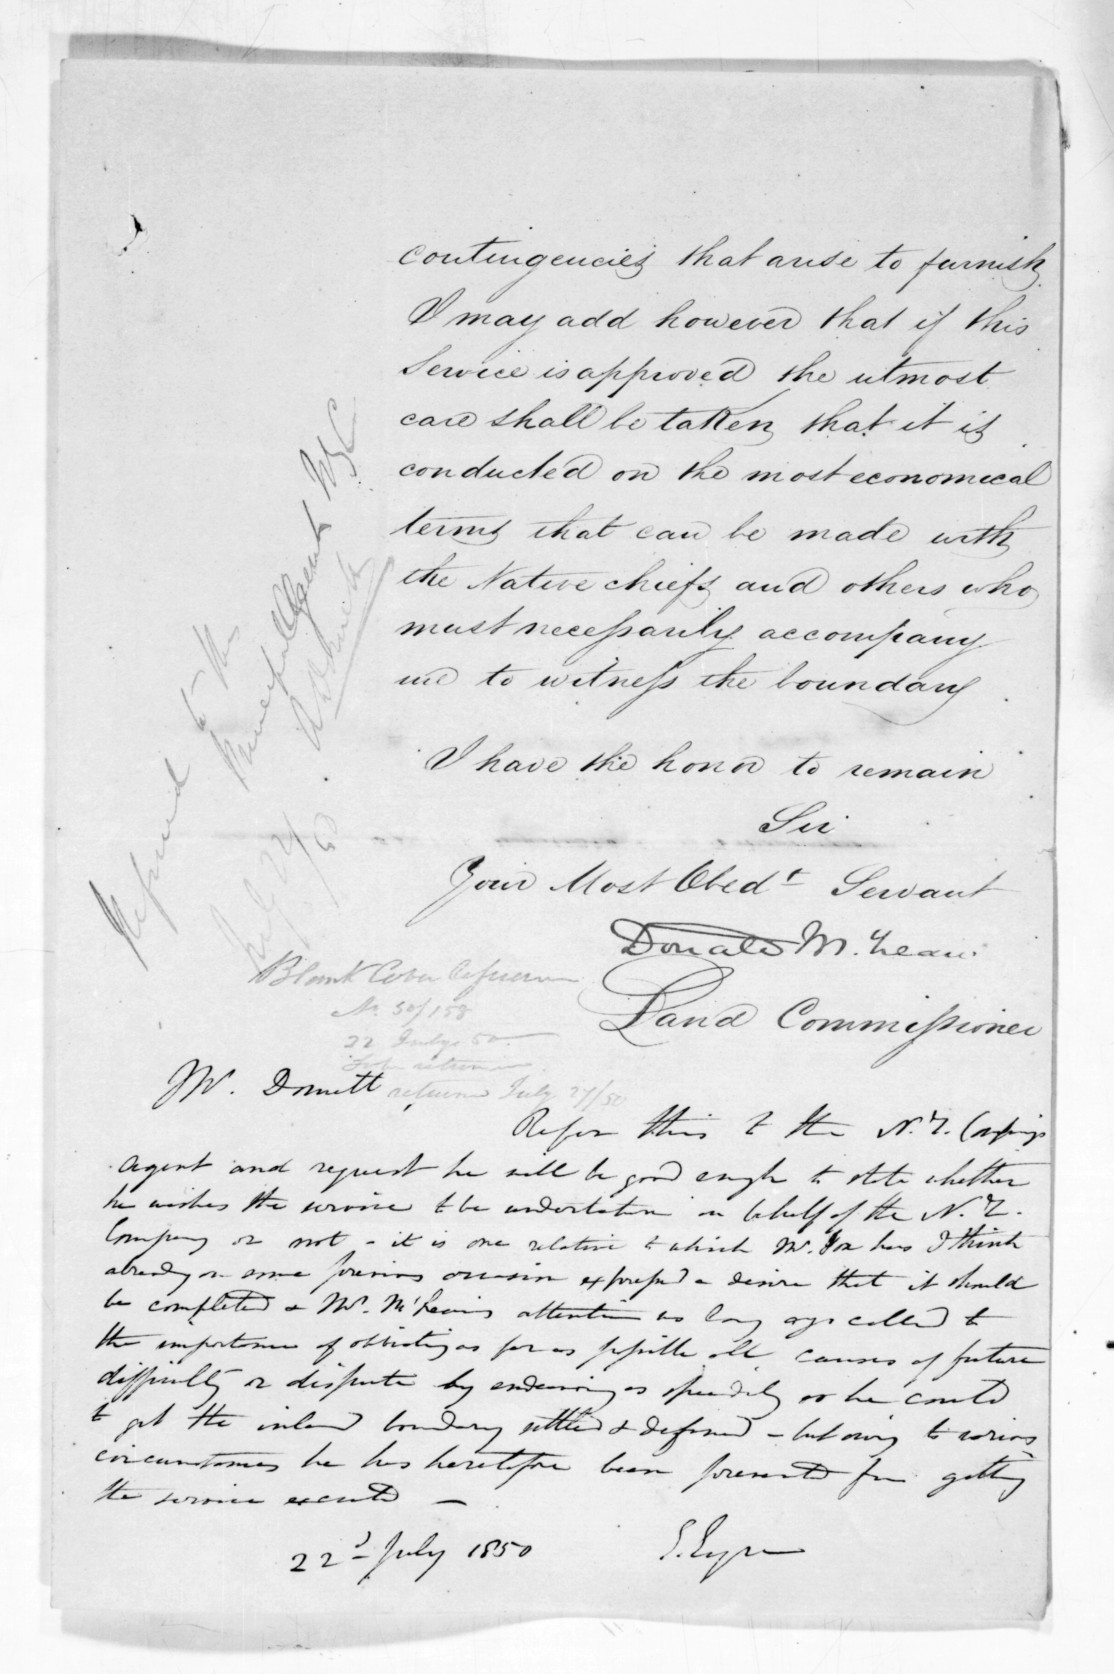 contingencies that arise to furnish
I may add however that if this
Service is approved the utmost
care shall be taken that it is
conducted on the most economical
terms that can be made with
the Native chiefs and others who
must necessarily accompany
me to witness the boundary
I have the honor to remain
Sir
Your Most Obedt Servant
Donald McLean
Land Commissioner
Referred to the
Principal Agent NZC
July 22/50
Blank Cover
No 50/158
22 July 50
returned July 27/50
Mr. Domett
Refer this to the N.Z. Companys
Agent and request he will be good enough to state whether
he wishes the service to be undertaken on behalf of the N.Z.
Company or not - it is one relative to which Mr. Fox has I think
already on some previous occasion expressed a desire that it should
be completed & Mr. McLean's attention was long ago called to
the importance of obviating as far as possible all causes of future
difficulty or dispute by endeavouring as speedily as he could
to get the inland boundary settled & defined - but owing to various
circumstances he has heretofore been prevented from getting
the service executed -
22d July 1850 E. Eyre